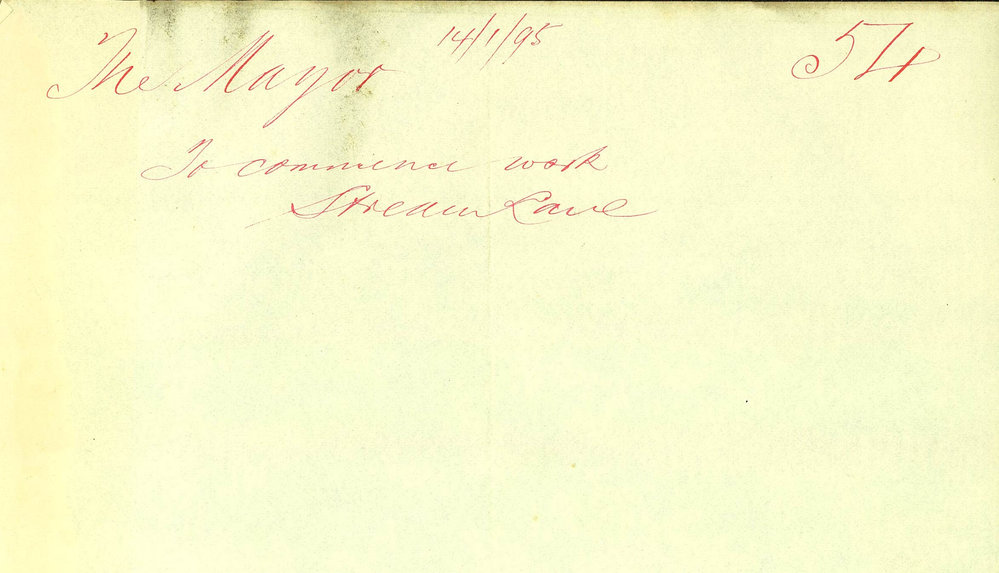 14/1/95
The Mayor
54
To commence work
Stream Lane